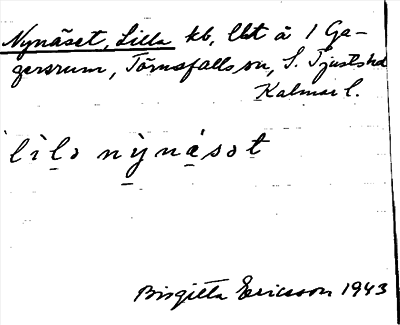 Nynäset, Lilla kb, lht å 1 Ga-
gersrum, Törnsfalls sn, S. Tjusts hd
Kalmar l.
lìl̠a nỳnä̠sə̠t
Birgitta Ericsson 1943